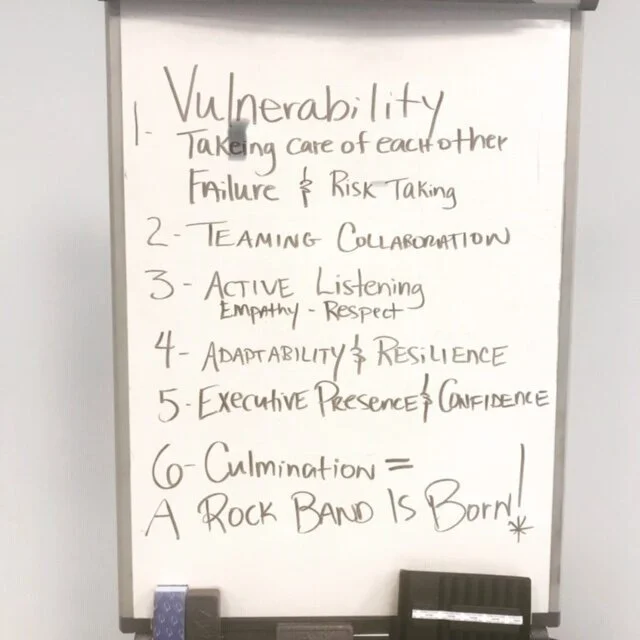 1- Vulnerability
Takeing care of each other
Failure & Risk Taking
2- TEAMING COLLABORATION
3- ACTIVE Listening
Empathy - Respect
4- ADAPTABILITY & RESILIENCE
5- EXECUTIVE PRESENCE & CONFIDENCE
6- Culmination =
A ROCK BAND IS Born!*